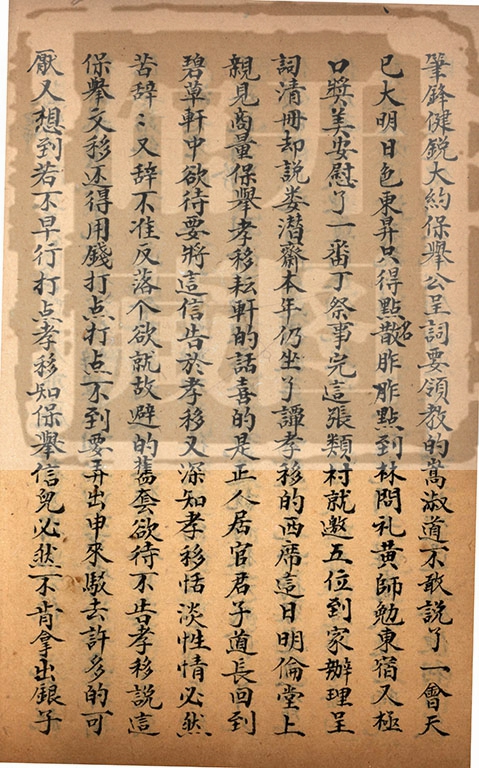 筆鋒健鋭大約保舉公呈詞要領教的嵩淑道不敢說了一會天
已大明日色東昇只得點名散胙胙點到林問礼黄師勉東宿又極
口奬美安慰了一番丁祭事完這張類村就邀五位到家辦理呈
詞清冊却說娄潜齋本年仍坐了譚孝移的西席這日明倫堂上
親見商量保舉孝移耘軒的話喜的是正人居官君子道長回到
碧草軒中欲待要將這信告於孝移又深知孝移恬淡性情必然
苦辞〻又辞不准反落个欲就故避的舊套欲待不告孝移說這
保舉文移还得用錢打点打点不到要弄出申來駁去許多的可
厭又想到若不早行打点孝移知保舉信兒必然不肯拿出銀子